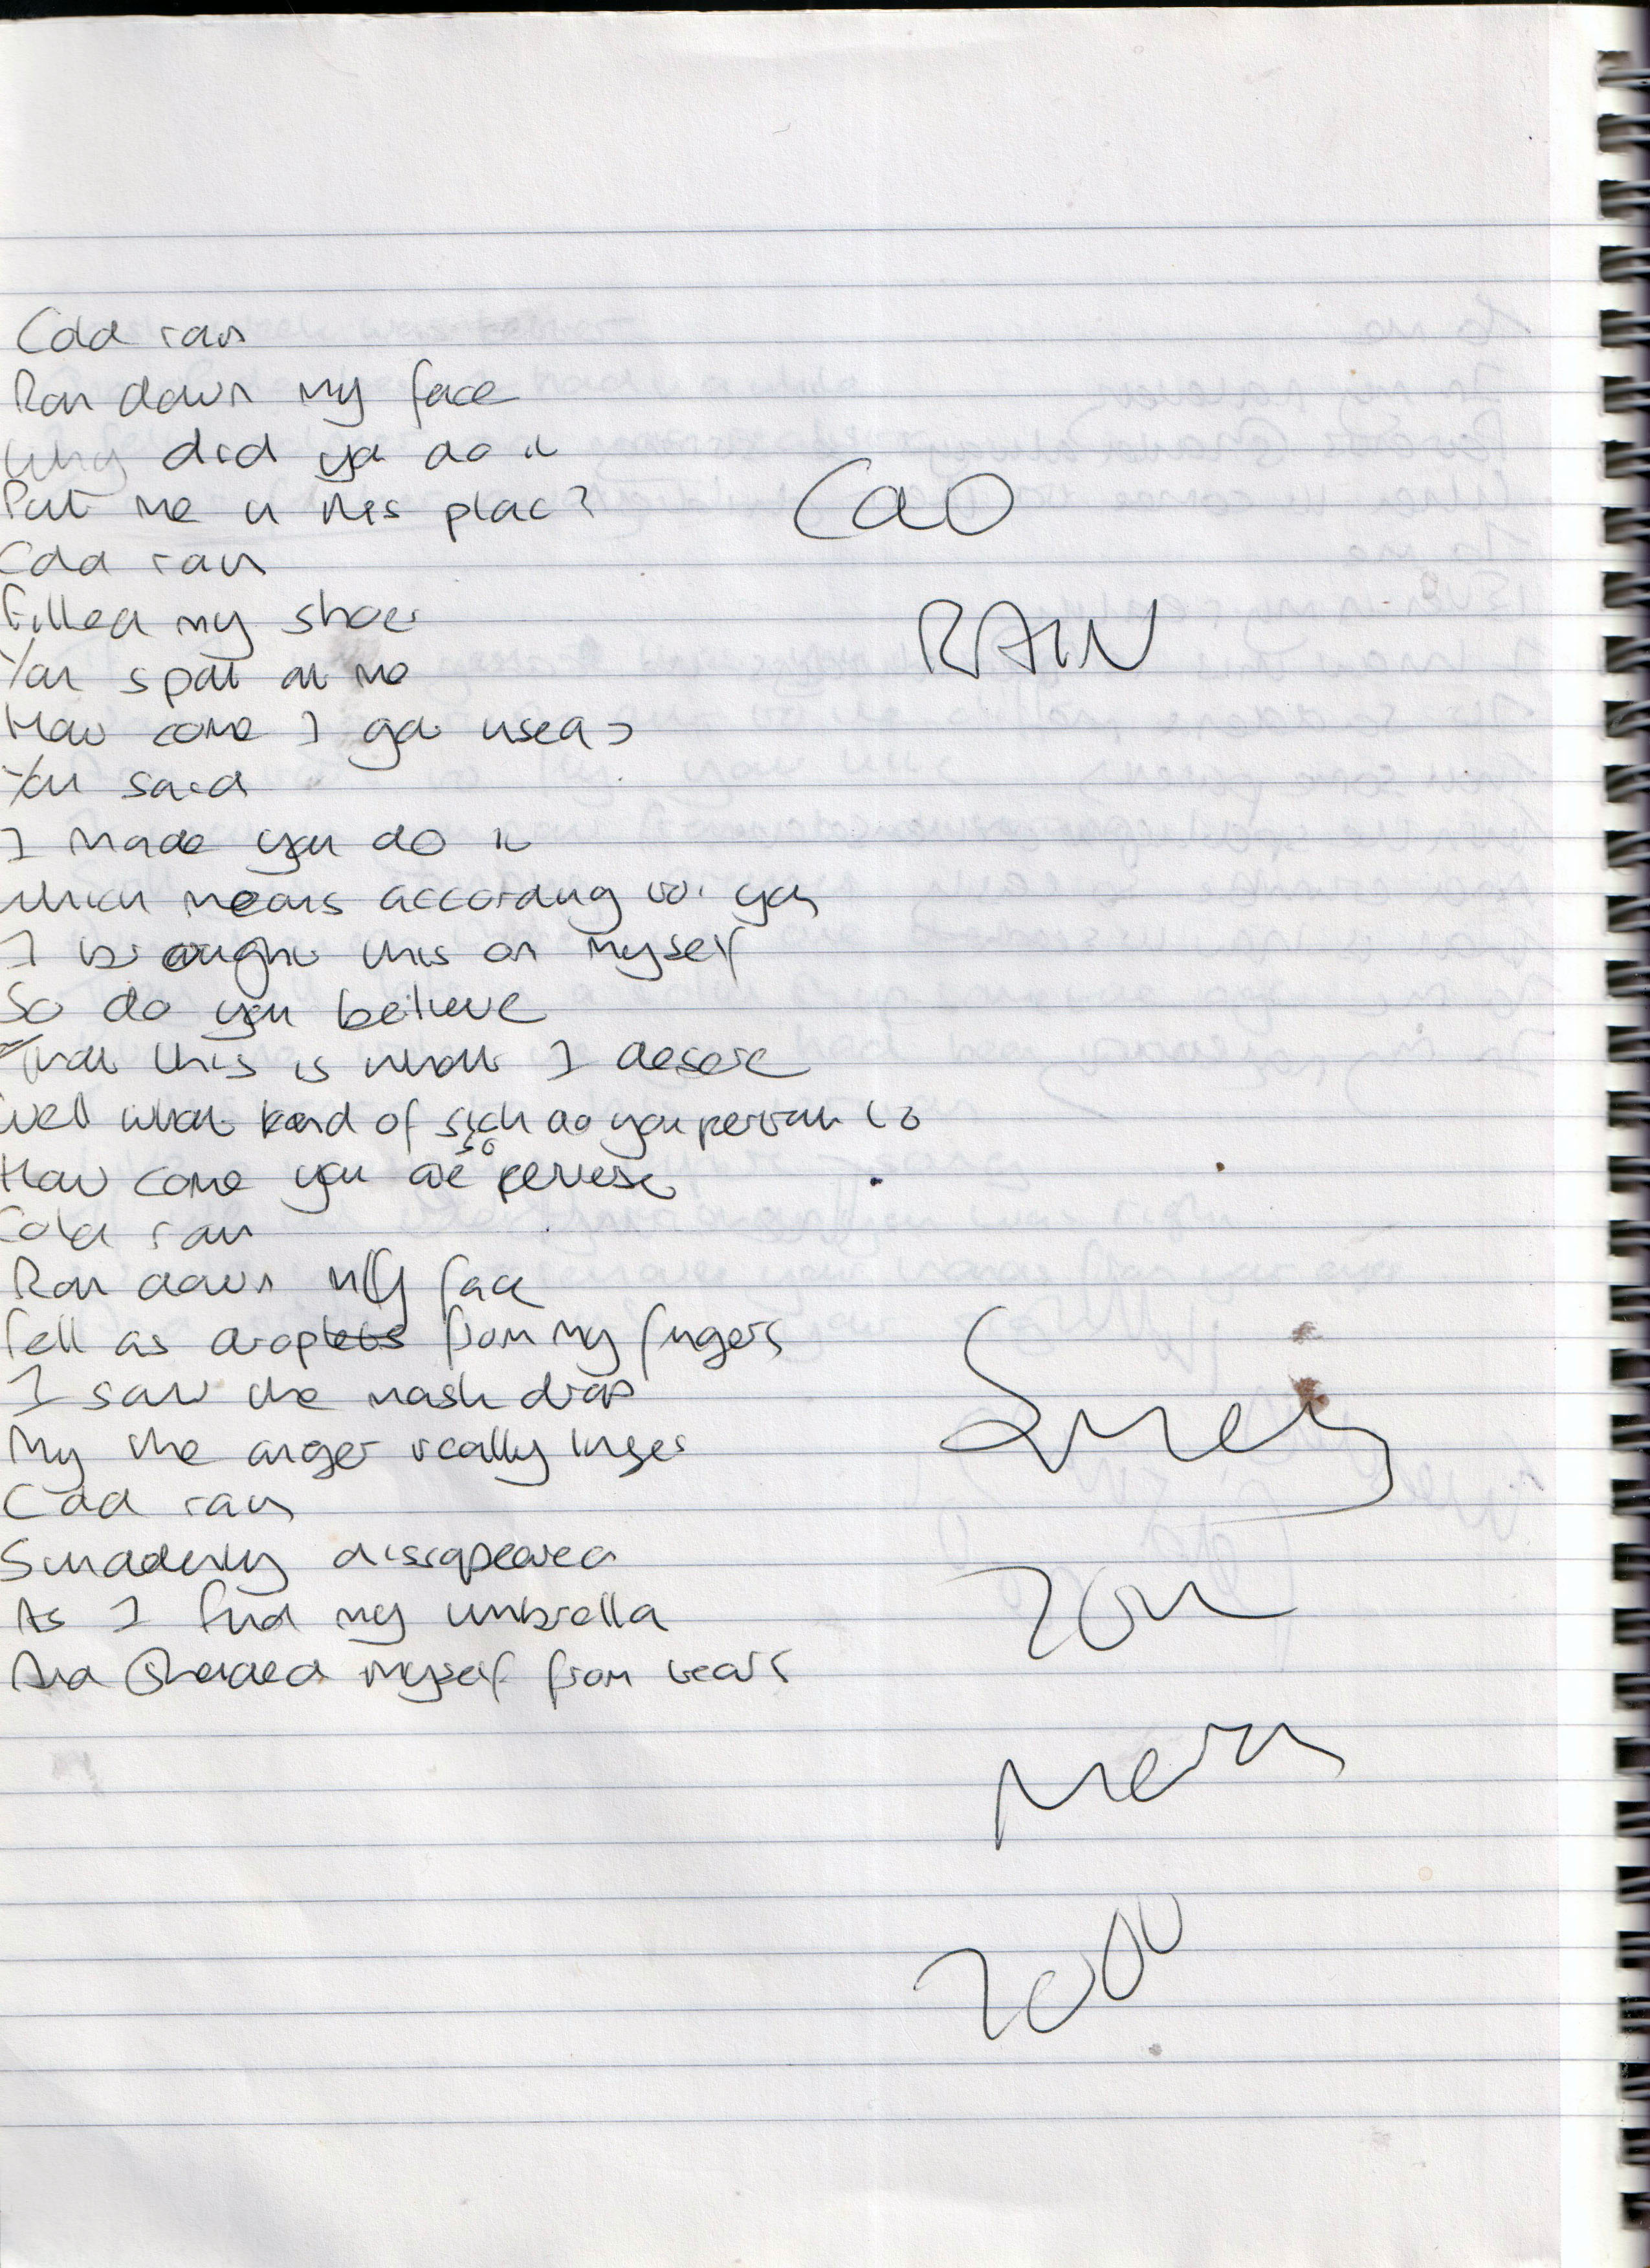 Cold rain
Ran down my face
Why did you do it
Put me in this place?
Cold rain
Filled my shoes
You spat on me
How come I got used?
You said
I made you do it
which means according to you
I brought this on myself
So do you believe
That this is what I desire
Well what kind of sick do you person is
How come you are so perverse
Cold rain
Ran down my face
Fell as droplets from my fingers
I saw the mask drop
My the anger really lingers
Cold rain
Suddenly dissapeared
As I find my umbrella
And Shielded myself from tears
Cold
RAIN
2000